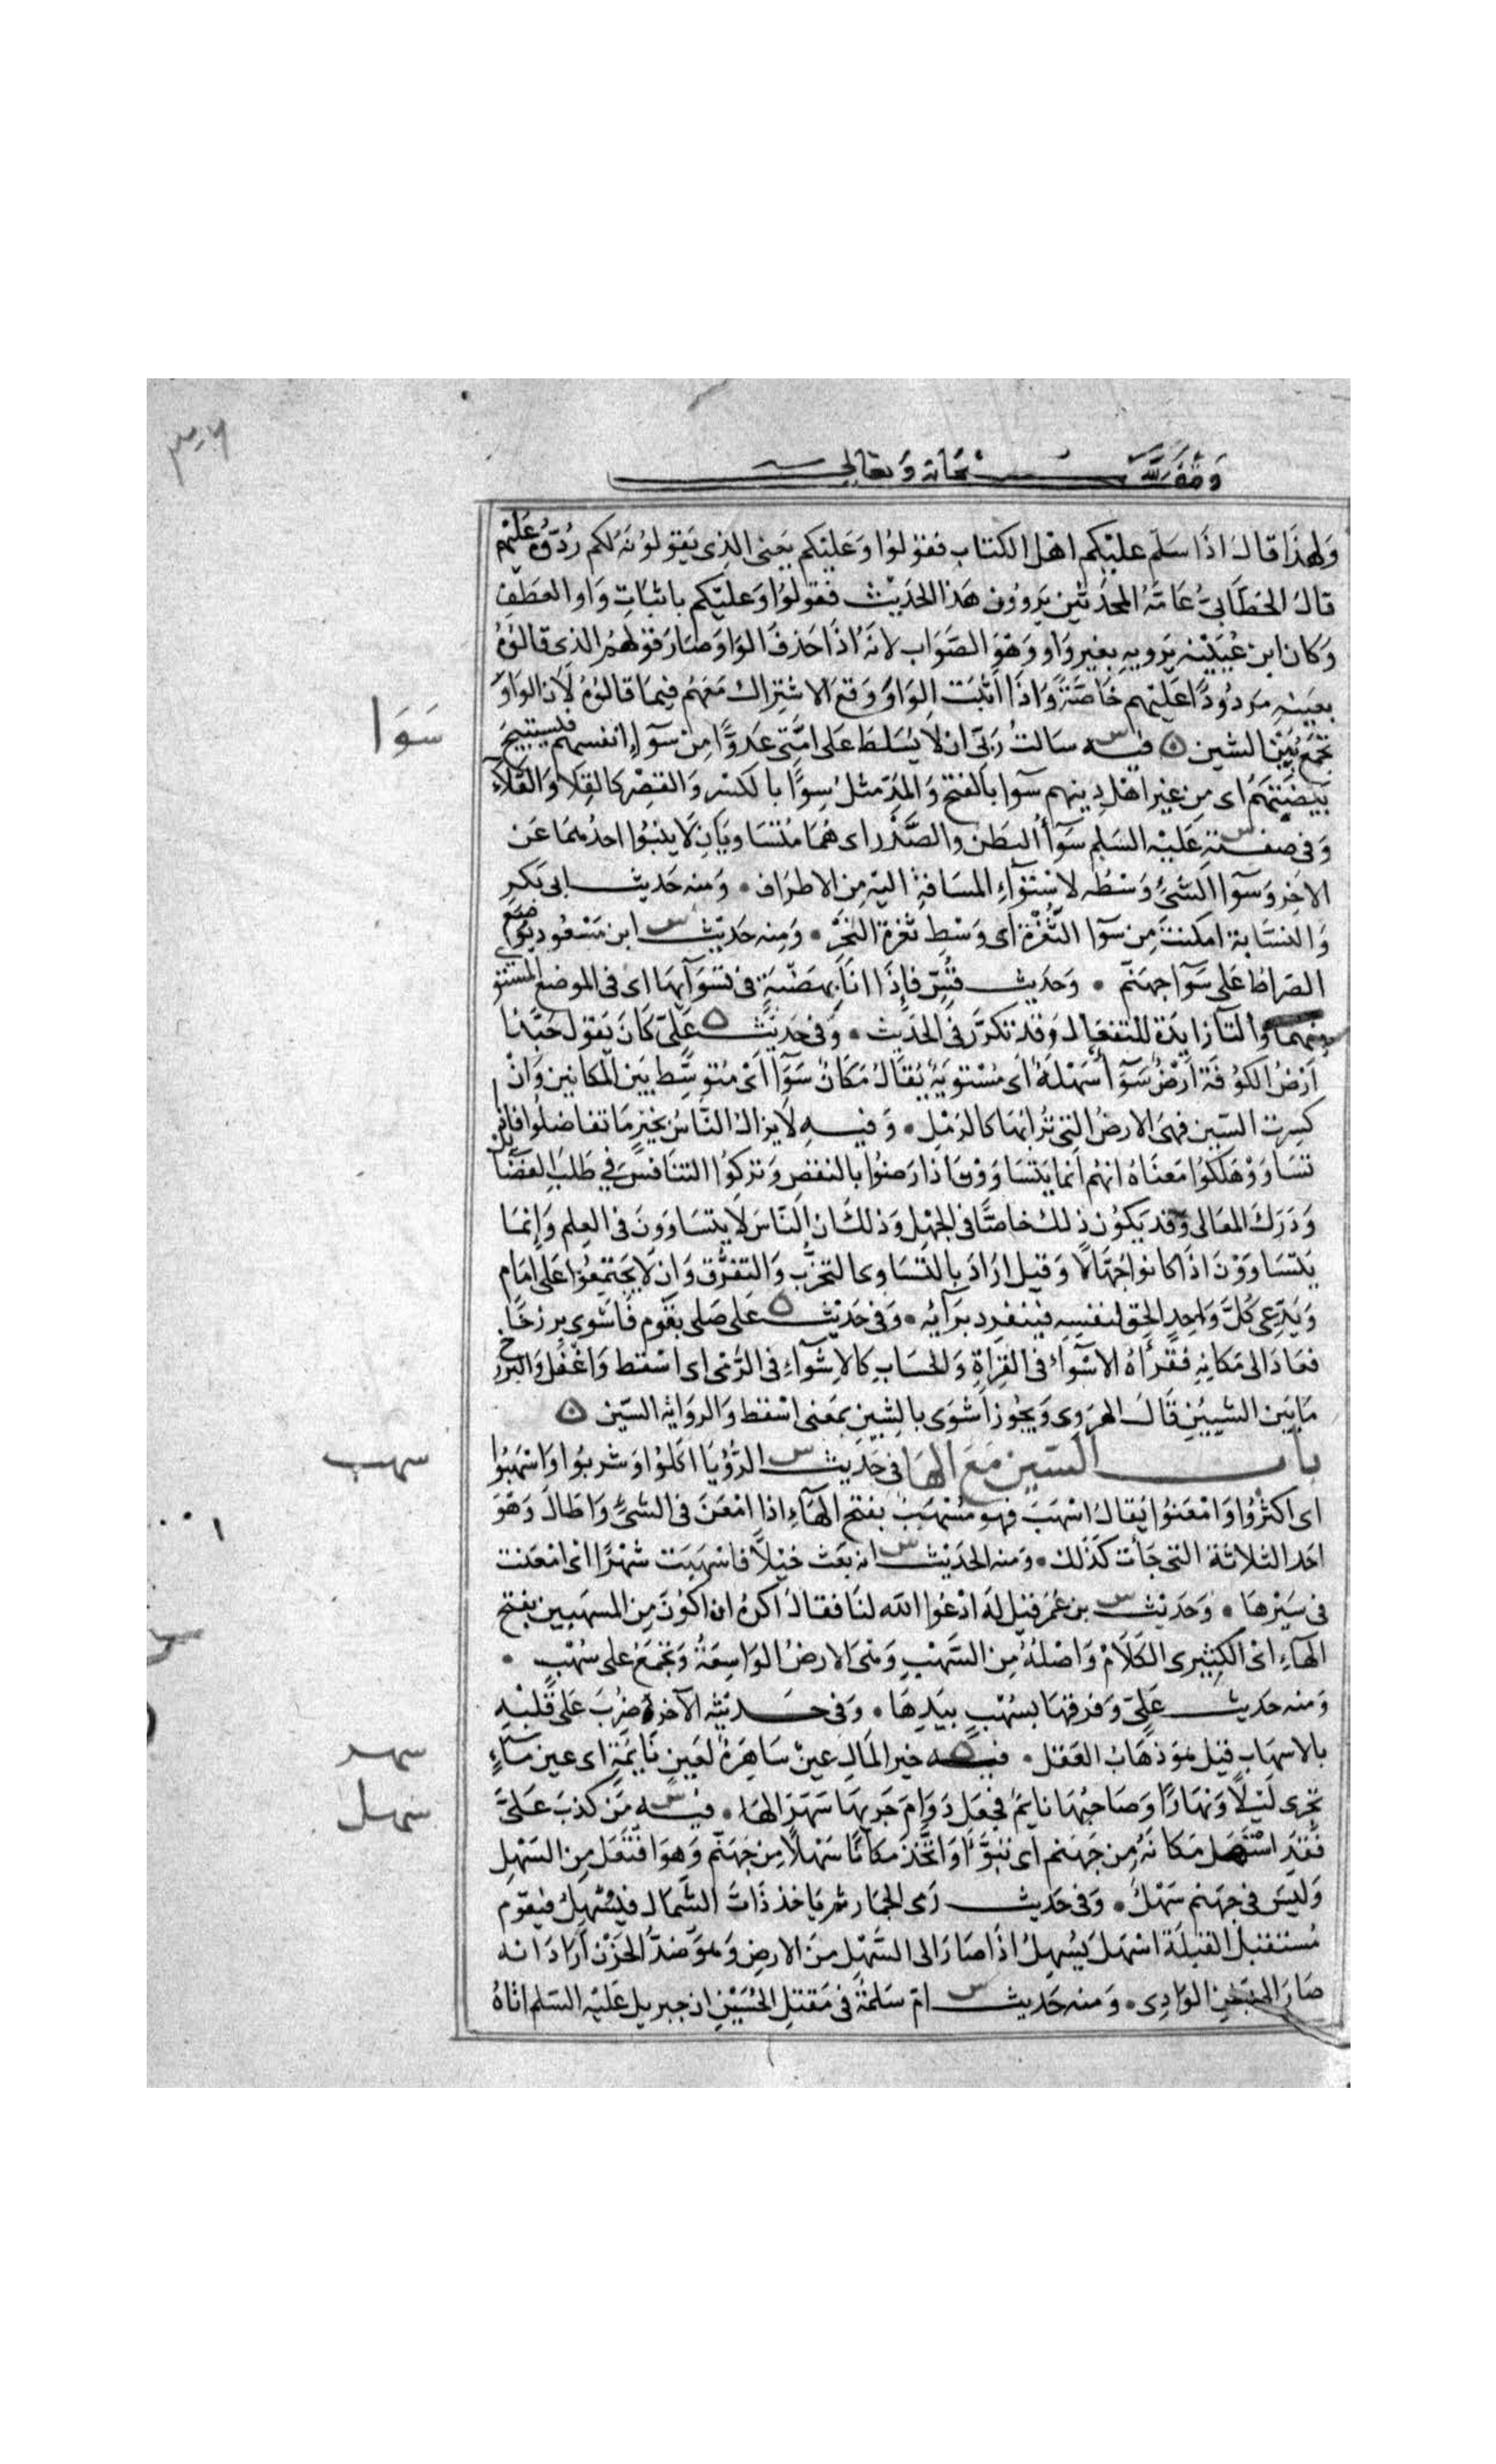 ٣٠٦
وقف لله سبحانه وتعالى
وَلهذَا قالَ اذَا سَلّم عليْكم اهْل الكتاب فقولوُا وَعَليْكم يَعنى الذِى يَقولوُنَهُ لكم رُدّوُه عَليْهم
قالَ الخطَّابىُّ عَامَّةُ المحدّثين يَروُون هَذا الحَديْث فقولوُا وَعليْكم باثباتِ وَاو العَطفِ
وَكان ابن عُيَيْنه يَرويهِ بغيرِ وَاو وَهْوَ الصَّوَاب لانهُ اذَا حَذفَ الوَاوَ صَارَ قولهمُ الذى قالوُهُ
بعينِهِ مَردُودًا عَليْهم خَاصَّةً وَاذَا اثبَتَ الوَاوَ وَقعَ الاشتِرَاك مَعَهُم فيمَا قالوُهُ لان الوَاوَ
تجمَع بَيْن الشيئين ٥ فيه سَالتُ رَبّى ان لَا يُسَلطَ عَلى امّتى عَدوًّا مِن سَوآءِ انفسهم فيستبيحَ
سَوَا
بَيضتهُم اى مِن غيراهْل دِينهم سَوا بالفتح وَالمَدّ مثلُ سِوًا بالكسْر وَالقصْرِ كالقِلَا وَالقَلَآء
وَفى صِفتهِ عَليْه السَّلم سَوَآءُ البَطن والصَّدْر اى هُمَا مُتَسَاويَان لَا ينبُوا احدُهمَا عَن
الاخِر وَسوآ الشَّئُ وَسْطُه لاسْتوَآءِ المسَافةِ اليْه مِن الاطرَاف • وَمِنه حَديث ابى بَكر
وَالنسّابة امكنتَ مِن سوَآ الثُّغْرَة اى وَسْطِ ثغرة النحْر • وَمِنه حَديث ابن مَسْعُود يوُضع
الصّراط عَلى سَوَآ جهنّم • وَحَديث قُسّ فإذَا انَا بهَضْبَة فى تَسْوَآئهَا اى فى الموضع المستو
منهما وَالتآ زايدَة للتفعال وَقد تكرّرَ فى الحَديْث • وَفى حَديْث عَلىّ كَانَ يَقولُ حَبّذا
اَرْضُ الكُوفة اَرْضٌ سَوَآ سَهْلة اى مُسْتويَةٌ يُقالُ مَكَانٌ سَوَآ اىْ مُتوسِّط بَين المكانين وَانْ
كسِرت السّين فهىَ الارضُ التى تُرابُهَا كالرّمْل • وَفيهِ لَايزالُ النَّاسُ بخيْرٍ مَا تفاضلوُا فاذا
تسَاوَوْ هَلكوُا مَعناهُ انهُم انما يَتسَاوَوْن اذا رَضوُا بالنقصِ وَتركوُا التنافسَ فى طَلبِ الفضَائل
وَدَرَك المعَالى وَقد يَكوُن ذلك خاصّا فى الجَهْلِ وَذلك ان النّاسَ لَا يتسَاوَونَ فى العِلم وَإنمَا
يتَسَاوَوْنَ اذَا كانوا جُهّالًا وَقيل ارَادَ بالتّسَاوى التحزُّب وَالتفرُّق وَان لَا يَجتمِعُوا عَلى اِمَام
وَيَدّعِى كُلّ وَاحِدٍ الحِق لنفسِهِ فيَنفرِد برَآئه • وَفى حَديْث عَلى صَلى بقوْم فاَسْوى برزخًا
فعَادَ الى مَكانِهِ فقرَأهُ الاسْوآءُ فى القِرَاة وَالحسَاب كالاشوَآءِ فى الرَّمى اى اسْقط وَاغْفل وَالبرزخ
مَا بَين الشيئين قالَ الهرَوى وَيجُوز اَشوَى بالشين بمَعنى اسْقط وَالرواية السّين ٥
بابُ السّين مَعَ الهَا فى حَديْث الرُّؤْيَا اكلوُا وَشربُوا وَاسْهَبُوا
سهب
اى اكثرُوا وَامْعَنُوا يُقالُ اسْهَبَ فهو مُسْهَبٌ بفتح الهَآءِ اذا امْعَنَ فى الشئُ وَاطَالَ وَهْوَ
احَد الثلاثة التى جَآءت كذلك • وَمنه الحَديْث انه بعَث خيْلًا فاسْهبَت شهْرًا اىْ امْعَنت
فى سَيْرهَا • وَحَديْث بن عُمَر قيْل لهُ ادْعُوا الله لنَا فقالُ اكرهُ ان اكوُنَ مِنَ المسهَبين بفتح
الهآءِ اىْ الكثِيرى الكلَام وَاصْلهُ مِن السَّهْب وَهْىَ الارضُ الوَاسِعَةُ وَتجْمَعُ على سُهُب •
وَمنه حَديث عَلىّ وَفرقهَا بسُهُب بيدِهَا • وَفى حَديثه الآخر ضُربَ عَلى قلبِهِ
بالاسهَابِ قيْل هوَ ذهَابُ العَقل • فيه خير المَال عينٌ سَاهِرَةٌ لعَينٍ نَايمَة اى عين مَآءٍ
سهر
تجْرى لَيْلًا وَنهَارًا وَصَاحبُهَا نايمٌ فجَعَل دَوَامَ جَريهَا سَهَرًا لهَا • فيه مَن كذبَ عَلىَّ
سهل
فقد استهَل مَكانَهُ مِن جهَنم اى تبوَّأ وَاتّخذ مَكانًا سَهْلًا مِن جَهَنّم وَهوَ افتعَل مِن السَهْلِ
وَليسَ فى جهَنم سَهْل • وَفى حَديث رَمى الجمَار ثم يَاخذ ذَات الشّمَال فيُسْهِلُ فيَقوم
مُستقبلَ القبلَة اسْهَل يُسْهِلُ اذا صَارَ الى السَّهْل منَ الارضِ وَهوَ ضدُّ الحَزْن اَرَادَ انه
صَارَ الى بَطن الوَادِى • وَمنه حَديث امّ سَلمة فى مَقتلِ الحُسَيْن ان جبريل عَليْه السّلم اتاهُ